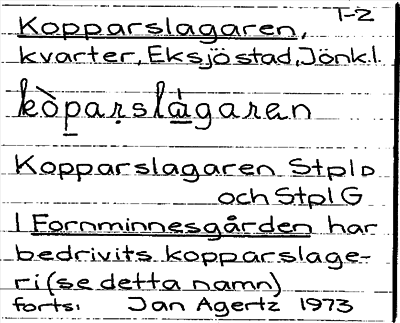 1-2
Kopparslagaren,
kvarter, Eksjö stad, Jönk.l.
kòpaṛslàgaren
Kopparslagaren Stpl D
och Stpl G
I Fornminnesgården har
bedrivits kopparslage-
ri (se detta namn)
forts: Jan Agertz 1973